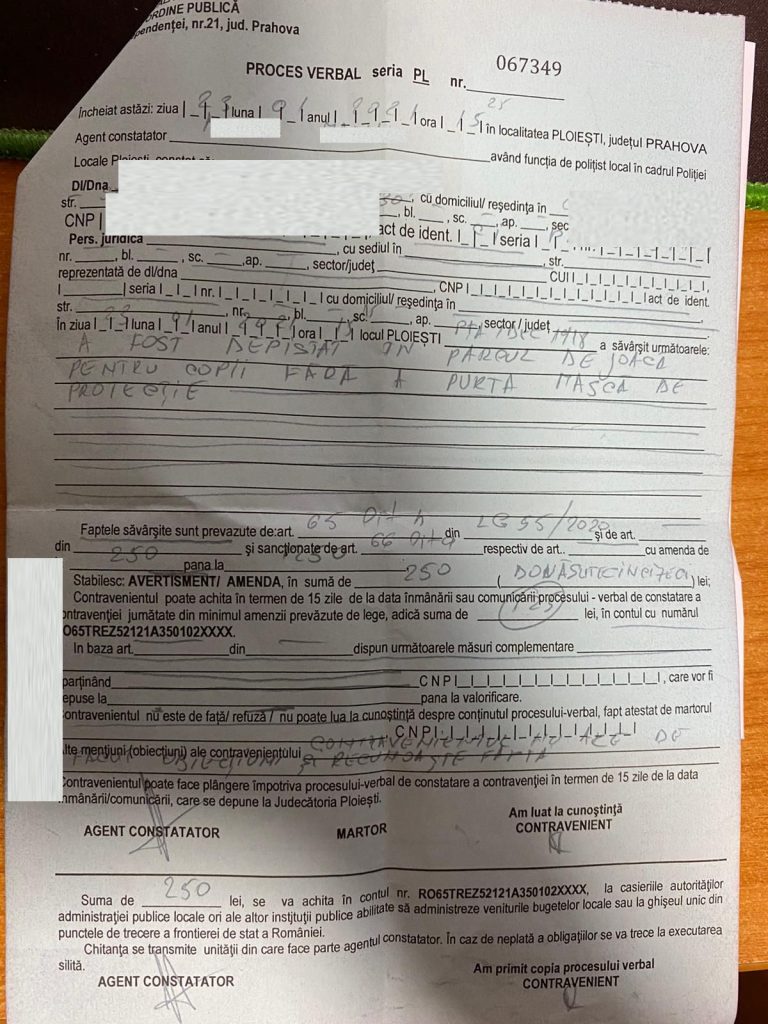 ORDINE PUBLICĂ
pendenţei, nr.21, jud. Prahova
PROCES VERBAL seria PL nr. 067349
25
Încheiat astăzi: ziua luna 01 anul ora 15 în localitatea PLOIEŞTI, judeţul PRAHOVA
Agent constatator având funcţia de poliţist local în cadrul Poliţiei
Locale Ploieşti, constat că
Dl/Dna. cu domiciliul/ reşedinţa în
str. bl. , sc. , ap. , sec
CNP act de ident. seria
Pers. juridică , cu sediul în , str.
nr. , bl. , sc. ,ap. , sector/judeţ CUI
reprezentată de dl/dna , CNP act de ident.
seria nr. cu domiciliul/ reşedinţa în
str. , nr. , bl. , sc. , ap. , sector / judeţ
În ziua luna 01 anul ora locul PLOIEŞTI P-TA 1 DEC 1918 a săvârşit următoarele:
A FOST DEPISTAT IN PARCUL DE JOACA
PENTRU COPII FARA A PURTA MASCA DE
PROTECTIE
Faptele săvârşite sunt prevazute de:art. 65 lit h din LG 55/2020 şi de art.
din şi sancţionate de art. 66 respectiv de art. cu amenda de
250 pana la
Stabilesc: AVERTISMENT/ AMENDA, în sumă de 250 ( DOUASUTECINCIZECI ) lei;
Contravenientul poate achita în termen de 15 zile de la data înmânării sau comunicării procesului - verbal de constatare a
contravenţiei jumătate din minimul amenzii prevăzute de lege, adică suma de 125 lei, în contul cu numărul
RO65TREZ52121A350102XXXX.
In baza art. din dispun următoarele măsuri complementare
parţinând CNP , care vor fi
depuse la pana la valorificare.
Contravenientul nu este de faţă/ refuză / nu poate lua la cunoştinţă despre conţinutul procesului-verbal, fapt atestat de martorul
CNP
Alte menţiuni (obiecţiuni) ale contravenientului CONTRAVENIENTUL NU ARE DE
FACUT OBIECTIUNI SI RECUNOASTE FAPTA
Contravenientul poate face plângere împotriva procesului-verbal de constatare a contravenţiei în termen de 15 zile de la data
înmânării/comunicării, care se depune la Judecătoria Ploieşti.
Am luat la cunoştinţă
AGENT CONSTATATOR MARTOR CONTRAVENIENT
Suma de 250 lei, se va achita în contul nr. RO65TREZ52121A350102XXXX, la casieriile autorităţilor
administraţiei publice locale ori ale altor instituţii publice abilitate să administreze veniturile bugetelor locale sau la ghişeul unic din
punctele de trecere a frontierei de stat a României.
Chitanţa se transmite unităţii din care face parte agentul constatator. În caz de neplată a obligaţiilor se va trece la executarea
silită.
Am primit copia procesului verbal
AGENT CONSTATATOR CONTRAVENIENT